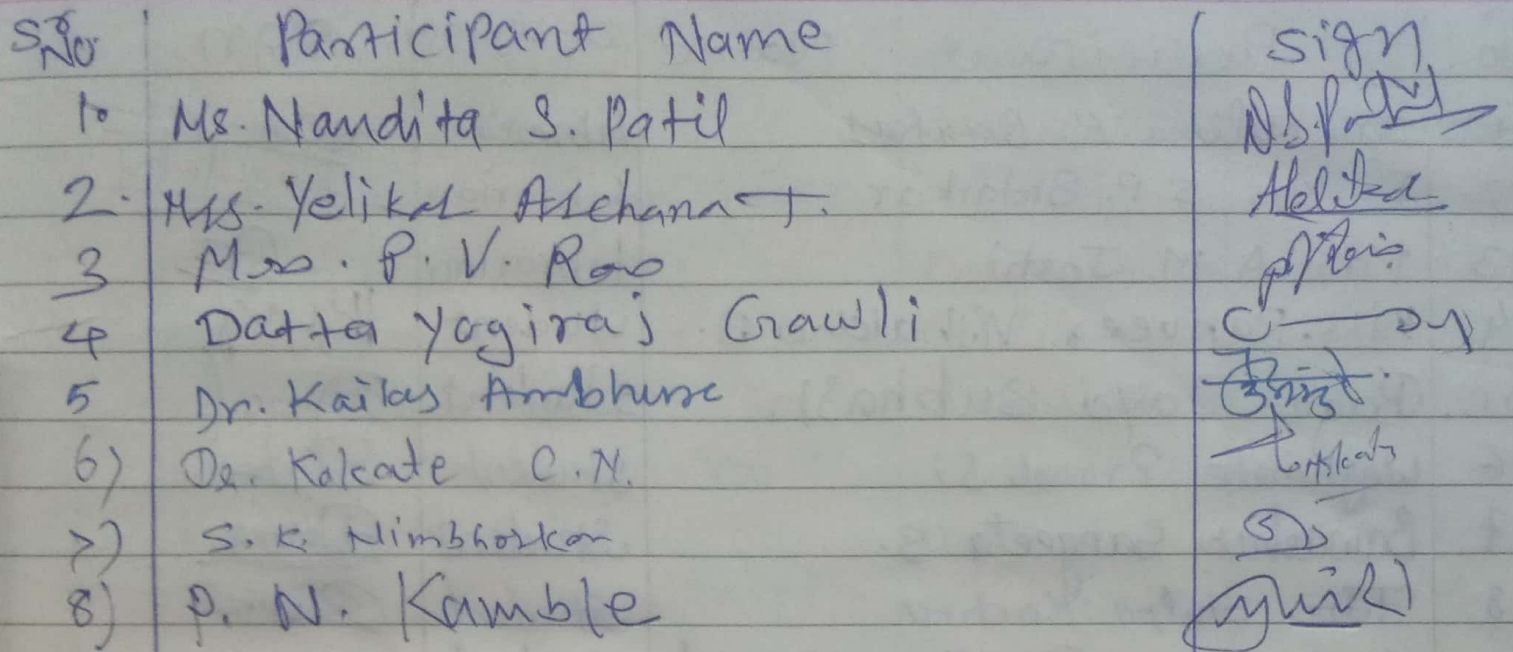 Sr No. Participant Name Sign
1. Ms. Nandita S. Patil N.S.Patil
2. Mrs. Yelikar Archana T.
3 Mrs. P. V. Rao
4 Datta Yogiraj Gawli
5 Dr. Kailas Ambhure
6) Dr. Kokate C.N.
7) S. K. Nimbhorkar
8) P. N. Kamble